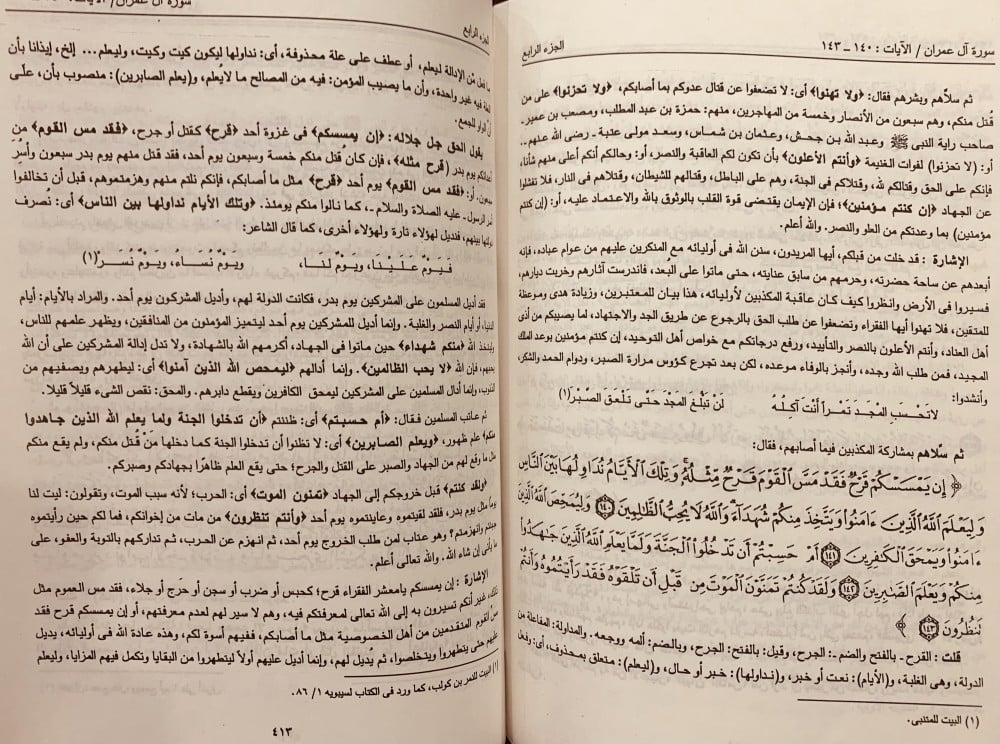 سورة آل عمران / الآيات : ١٤٠ ـ ١٤٣
الجزء الرابع
ثم سلاَّهم وبشرهم فقال: ﴿ولا تهنوا﴾ أى: لا تضعفوا عن قتال عدوكم بما أصابكم، ﴿ولا تحزنوا﴾ على من
قُتل منكم، وهم سبعون من الأنصار وخمسة من المهاجرين، منهم: حمزة بن عبد المطلب، ومصعب بن عمير ـ
صاحب راية النبى ﷺ وعبد الله بن جحش، وعثمان بن شماس، وسعد مولى عتبة ـ رضى الله عنهم ـ.
أو: (لا تحزنوا) لفوات الغنيمة ﴿وأنتم الأعلون﴾ بأن تكون لكم العاقبة والنصر، أو: وحالكم أنكم أعلى منهم شأنا،
فإنكم على الحق وقتالكم لله، وقتلاكم فى الجنة، وهم على الباطل، وقتالهم للشيطان، وقتلاهم فى النار، فلا تفشلوا
عن الجهاد ﴿إن كنتم مؤمنين﴾؛ فإن الإيمان يقتضى قوة القلب بالوثوق بالله والاعتماد عليه، أو: (إن كنتم
مؤمنين) بما وعدتكم من العلو والنصر. والله أعلم.
الإشارة : قد خلت من قبلكم، أيها المريدون، سنن الله فى أوليائه مع المنكرين عليهم من عوام عباده، فإنه
أبعدهم عن ساحة حضرته، وحرمهم من سابق عنايته، حتى ماتوا على البُعد، فاندرست آثارهم وخربت ديارهم،
فسيروا فى الأرض وانظروا كيف كان عاقبة المكذبين لأوليائه، هذا بيان للمعتبرين، وزيادة هدى وموعظة
للمتقين، فلا تهنوا أيها الفقراء وتضعفوا عن طلب الحق بالرجوع عن طريق الجد والاجتهاد، لما يصيبكم من أذى
أهل العناد، وأنتم الأعلون بالنصر والتأييد، ورفع درجاتكم مع خواص أهل التوحيد، إن كنتم مؤمنين بوعد الملك
المجيد، فمن طلب الله وجده، وأنجز بالوفاء موعده، لكن بعد تجرع كؤوس مرارة الصبر، ودوام الحمد والشكر،
وأنشدوا:
لا تحْسَبِ الْمجْدَ تَمْراً أنْتَ آكلُهُ لَنْ تَبْلُغَ المجْدَ حتى تلْعق الصبْرَ(١)
ثم سلاَّهم بمشاركة المكذبين فيما أصابهم، فقال:
﴿ إِن يَمْسَسْكُمْ قَرْحٌ فَقَدْ مَسَّ ٱلْقَوْمَ قَرْحٌ مِّثْلُهُۥ وَتِلْكَ ٱلْأَيَّامُ نُدَاوِلُهَا بَيْنَ ٱلنَّاسِ
وَلِيَعْلَمَ ٱللَّهُ ٱلَّذِينَ ءَامَنُوا۟ وَيَتَّخِذَ مِنكُمْ شُهَدَآءَ وَٱللَّهُ لَا يُحِبُّ ٱلظَّـٰلِمِينَ ١٤٠ وَلِيُمَحِّصَ ٱللَّهُ ٱلَّذِينَ
ءَامَنُوا۟ وَيَمْحَقَ ٱلْكَـٰفِرِينَ ١٤١ أَمْ حَسِبْتُمْ أَن تَدْخُلُوا۟ ٱلْجَنَّةَ وَلَمَّا يَعْلَمِ ٱللَّهُ ٱلَّذِينَ جَـٰهَدُوا۟
مِنكُمْ وَيَعْلَمَ ٱلصَّـٰبِرِينَ ١٤٢ وَلَقَدْ كُنتُمْ تَمَنَّوْنَ ٱلْمَوْتَ مِن قَبْلِ أَن تَلْقَوْهُ فَقَدْ رَأَيْتُمُوهُ وَأَنتُمْ
تَنظُرُونَ ١٤٣ ﴾
قلت : القَرح ـ بالفتح والضم ـ: الجرح، وقيل: بالفتح: الجرح، وبالضم: ألمه ووجعه ـ. والمداولة: المفاعلة من
الدولة، وهى الغلبة، و(الأيام): نعت أو خبر، و(نداولها): خبر أو حال، و(ليعلم): متعلق بمحذوف، أى: وفعل
(١) البيت للمتنبى.
سورة آل عمران / الآيات
الجزء الرابع
ما فعل من الإدالة ليعلم، أو عطف على علة محذوفة، أى: نداولها ليكون كيت وكيت، وليعلم... إلخ، إيذانا بأن
العلة فيه غير واحدة، وأن ما يصيب المؤمن: فيه من المصالح ما لا يعلم، و(يعلم الصابرين): منصوب بأن، على
أن الواو للجمع.
يقول الحق جل جلاله: ﴿إن يمسسكم﴾ فى غزوة أحد ﴿قرح﴾ كقتل أو جرح، ﴿فقد مس القوم﴾ من
أعدائكم يوم بدر ﴿قرح مثله﴾، فإن كان قُتل منكم خمسة وسبعون يوم أحد، فقد قتل منهم يوم بدر سبعون وأُسِر
سبعون، أو: ﴿فقد مس القوم﴾ يوم أحد ﴿قرح﴾ مثل ما أصابكم، فإنكم نلتم منهم وهزمتموهم، قبل أن تخالفوا
أمر الرسول ـ عليه الصلاة والسلام ـ، كما نالوا منكم يومئذ. ﴿وتلك الأيام نداولها بين الناس﴾ أى: نُصرف
دولتها بينهم، فنديل لهؤلاء تارة ولهؤلاء أخرى، كما قال الشاعر:
فَيَوْمٌ عَلَيْنَا، وَيَوْمٌ لَنَا، وَيَوْمٌ نَسَاءُ، وَيَوْمٌ نُسَرُّ(١)
فقد أديل المسلمون على المشركين يوم بدر، فكانت الدولة لهم، وأديل المشركون يوم أحد. والمراد بالأيام: أيام
الدنيا، أو أيام النصر والغلبة. وإنما أديل للمشركين يوم أحد ليتميز المؤمنون من المنافقين، ويظهر علمهم للناس،
وليتخذ الله ﴿منكم شهداء﴾ حين ماتوا فى الجهاد، أكرمهم الله بالشهادة، ولا تدل إدالة المشركين على أن الله
يحبهم، فإن الله ﴿لا يحب الظالمين﴾. وإنما أدالهم ﴿ليمحص الله الذين آمنوا﴾ أى: ليطهرهم ويصفيهم من
الذنوب، وإنما أدال المسلمين على المشركين ليمحق الكافرين ويقطع دابرهم. والمحق: نقص الشىء قليلاً قليلا.
ثم عاتب المسلمين فقال: ﴿أم حسبتم﴾ أى: ظننتم ﴿أن تدخلوا الجنة ولما يعلم الله الذين جاهدوا
منكم﴾ علم ظهور، ﴿ويعلم الصابرين﴾ أى: لا تظنوا أن تدخلوا الجنة كما دخلها مَنْ قُتل منكم، ولم يقع منكم
مثل ما وقع لهم من الجهاد والصبر على القتل والجرح؛ حتى يقع العلم ظاهرًا بجهادكم وصبركم.
﴿ولقد كنتم﴾ قبل خروجكم إلى الجهاد ﴿تمنون الموت﴾ أى: الحرب؛ لأنه سبب الموت، وتقولون: ليت لنا
يوماً مثل يوم بدر، فلقد لقيتموه وعاينتموه يوم أحد ﴿وأنتم تنظرون﴾ من مات من إخوانكم، فما لكم حين رأيتموه
جبنتم وانهزمتم؟ وهو عتاب لمن طلب الخروج يوم أحد، ثم انهزم عن الحرب، ثم تداركهم بالتوبة والعفو، على
ما يأتى إن شاء الله. والله تعالى أعلم.
الإشارة : إن يمسسكم يا معشر الفقراء قرح؛ كحبس أو ضرب أو سجن أو حَرَج أو جلاء، فقد مس العموم مثل
ذلك، غير أنكم تسيرون به إلى الله تعالى لمعرفتكم فيه، وهم لا سير لهم لعدم معرفتهم، أو إن يمسسكم قرح فقد
مس القوم المتقدمين من أهل الخصوصية مثل ما أصابكم، ففيهم أسوة لكم، وهذه عادة الله فى أوليائه، يديل
عليهم حتى يتطهروا ويتخلصوا، ثم يُديل لهم، وإنما أديل عليهم أولاً ليتطهروا من البقايا وتكمل فيهم المزايا، وليعلم
(١) البيت للنمر بن تولب، كما ورد فى الكتاب لسيبويه ١/ ٨٦.
٤١٣